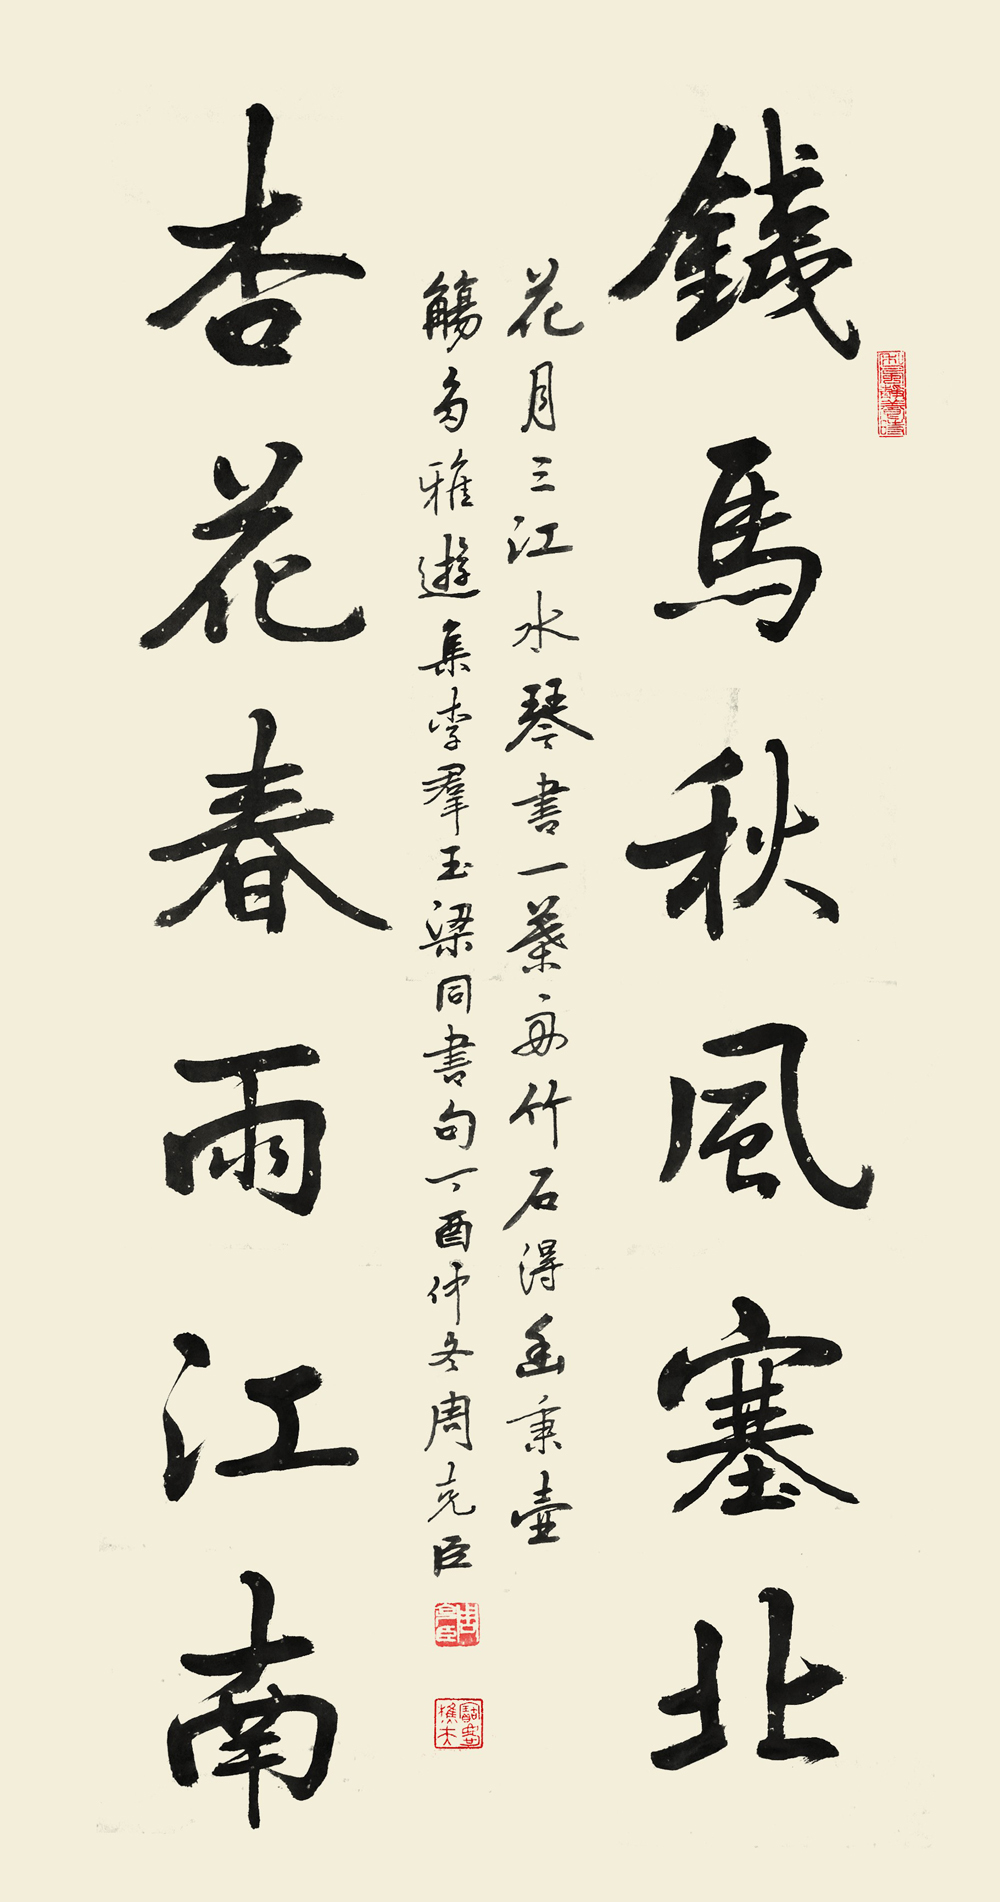 鐵馬秋風塞北
花月三江水琴書一葉舟竹石得幽秉壺
觴多雅遊集李羣玉梁同書句丁酉仲冬周克臣
周克臣
杏花春雨江南